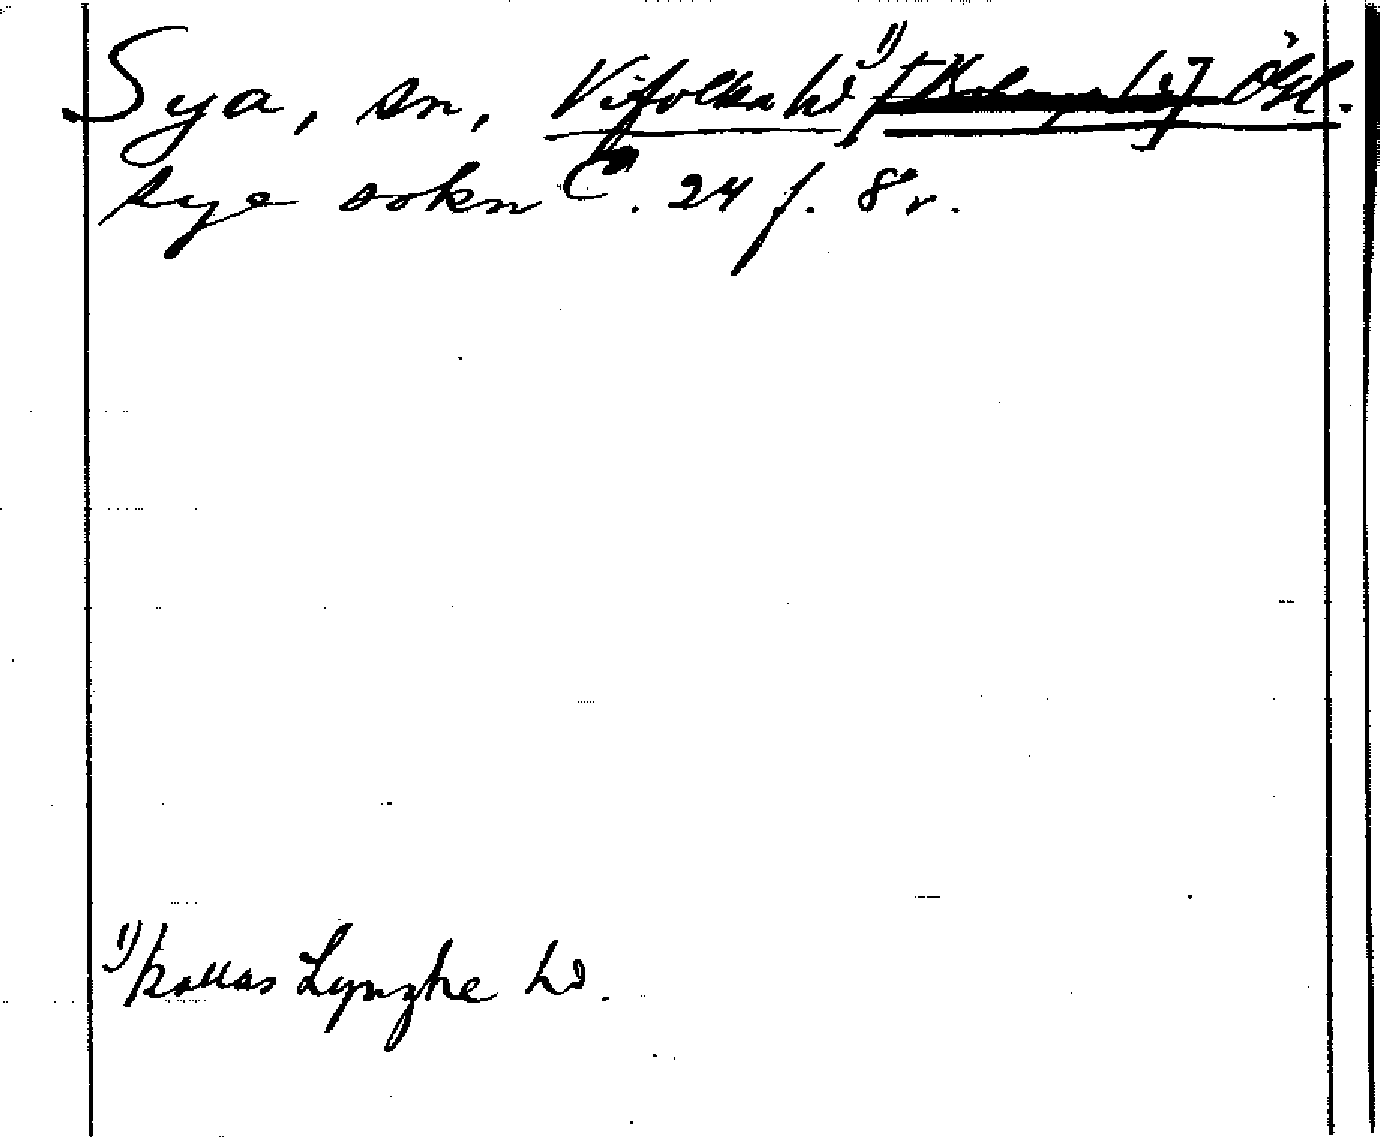 Sya, sn, Vifolka hd ¹⁾ Ögl.
sye sokn C. 24 f. 8 r.
¹⁾ kallas Lynghe hd.